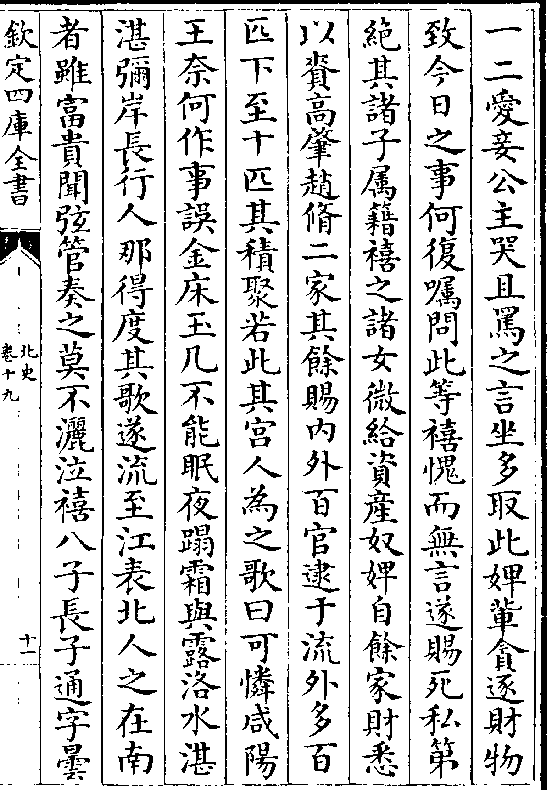 一二愛妾公主哭且罵之言坐多取此婢輩貪逐財物
致今日之事何復囑問此等禧愧而無言遂賜死私第
絶其諸子属籍禧之諸女微給資産奴婢自餘家財悉
以賚高肇趙脩二家其餘賜内外百官逮于流外多百
匹下至十匹其積聚若此其宫人為之歌曰可憐咸陽
王奈何作事誤金床玉几不能眠夜蹋霜與露洛水湛
湛彌岸長行人那得度其歌遂流至江表北人之在南
者雖富貴聞弦管奏之莫不灑泣禧八子長子通字曇
欽定四庫全書
北史
卷十九
十一